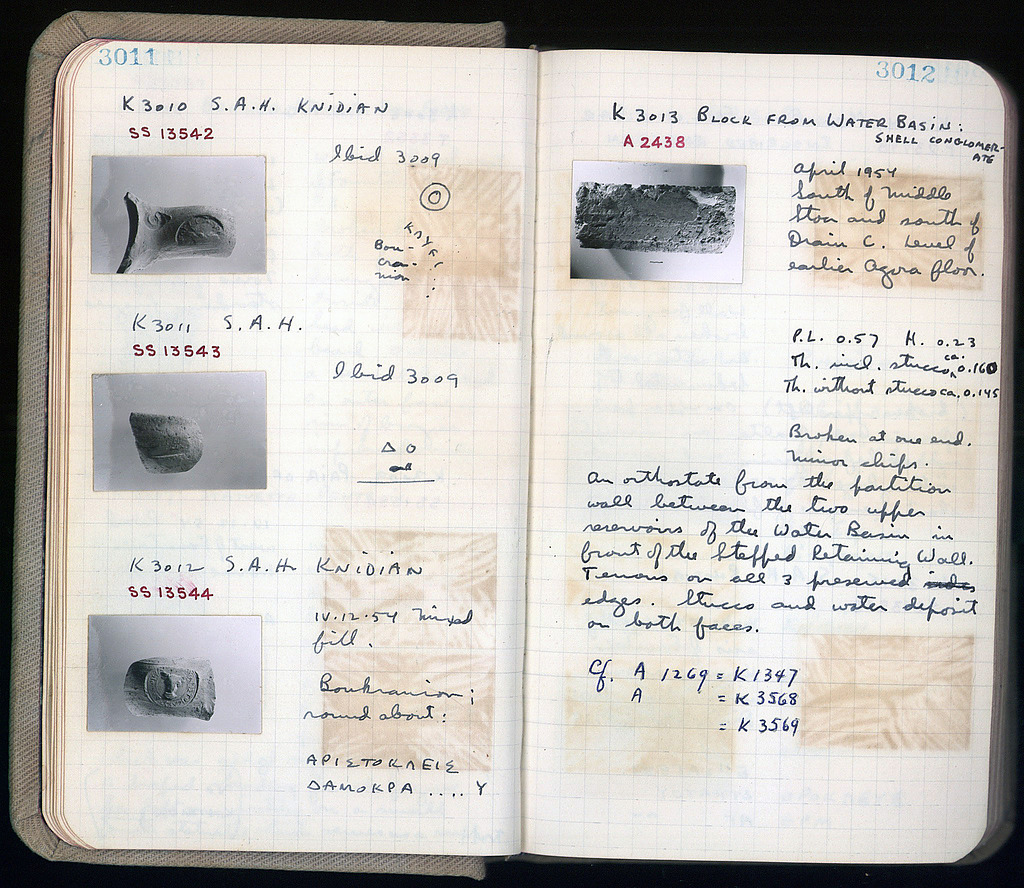 3011
K 3010 S.A.H. KNIDIAN
SS 13542
Ibid 3009
Bou-
cra-
nion
K 3011 S.A.H.
SS 13543
Ibid 3009
Δ Ο
K 3012 S.A.H. KNIDIAN
SS 13544
IV.12.54 Mixed
fill.
Boukranion;
round about:
ΑΡΙΣΤΟΚΛΕΙΣ
ΔΑΜΟΚΡΑ .... Υ
3012
K 3013 BLOCK FROM WATER BASIN:
SHELL CONGLOMER-
ATE
A 2438
April 1954
South of Middle
Stoa and south of
Drain C. Level of
earlier Agora floor.
P.L. 0.57 H. 0.23
Th. incl. stucco, ca. 0.160
Th. without stucco ca. 0.145
Broken at one end.
Minor chips.
An orthostate from the partition
wall between the two upper
reservoirs of the Water Basin in
front of the Stepped Retaining Wall.
Tenons on all 3 preserved
edges. Stucco and water deposit
on both faces.
Cf. A 1269 = K 1347
A = K 3568
= K 3569